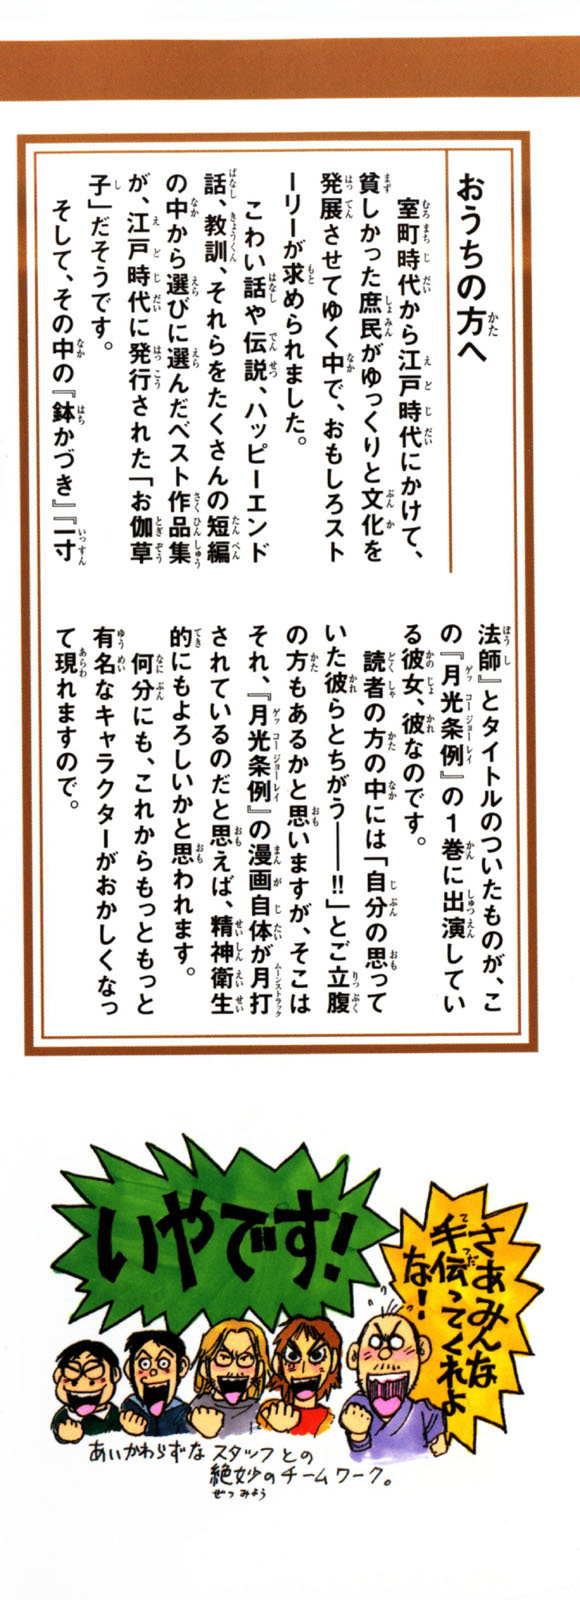 おうちの方へ
室町時代から江戸時代にかけて、
貧しかった庶民がゆっくりと文化を
発展させてゆく中で、おもしろスト
ーリーが求められました。
こわい話や伝説、ハッピーエンド
話、教訓、それらをたくさんの短編
の中から選びに選んだベスト作品集
が、江戸時代に発行された「お伽草
子」だそうです。
そして、その中の『鉢かづき』『一寸
法師』とタイトルのついたものが、こ
の『月光条例』の1巻に出演してい
る彼女、彼なのです。
読者の方の中には「自分の思って
いた彼らとちがう――!!」とご立腹
の方もあるかと思いますが、そこは
それ、『月光条例』の漫画自体が月打
されているのだと思えば、精神衛生
的にもよろしいかと思われます。
何分にも、これからもっともっと
有名なキャラクターがおかしくなっ
て現れますので。
さあみんな
手伝ってくれよ
な!
いやです!
あいかわらずなスタッフとの
絶妙のチームワーク。